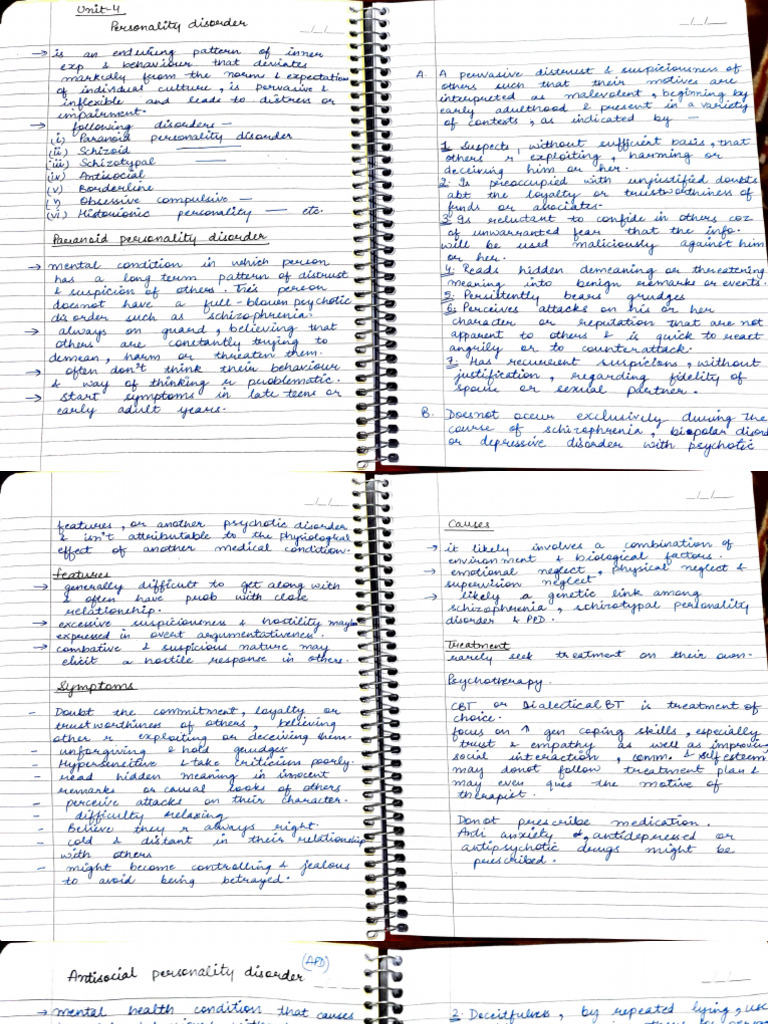 Unit-4
Personality disorder
__/__/__
→ is an enduring pattern of inner
exp & behaviour that deviates
markedly from the norm & expectation
of individual culture, is pervasive &
inflexible and leads to distress or
impairment.
→ following disorders -
(i) Paranoid personality disorder
(ii) Schizoid
(iii) Schizotypal
(iv) Antisocial
(v) Borderline
(v) Obsessive compulsive -
(vi) Historionic personality - etc.
Paranoid personality disorder
→ mental condition in which person
has a long term pattern of distrust
& suspicion of others. This person
doesnot have a full-blown psychotic
disorder such as schizophrenia.
→ always on guard, believing that
others are constantly trying to
demean, harm or threaten them.
→ often don't think their behaviour
& way of thinking r problematic.
→ start symptoms in late teens or
early adult years.
__/__/__
A. A pervasive distrust & suspiciousness of
others such that their motives are
interpreted as malevolent, beginning by
early adulthood & present in a variety
of contexts, as indicated by -
1. Suspects, without sufficient basis, that
others r exploiting, harming or
deceiving him or her.
2. Is preoccupied with unjustified doubts
abt the loyalty or trustworthiness of
frnds or asociates.
3. Is reluctant to confide in others coz
of unwarranted fear that the info.
will be used maliciously against him
or her.
4. Reads hidden demeaning or threatening
meaning into benign remarks or events.
5. Persistently bears grudges
6. Perceives attacks on his or her
character or reputation that are not
apparent to others & is quick to react
angrily or to counterattack.
7. Has recurrent suspicions, without
justification, regarding fidelity of
spouse or sexual partner.
B. Doesnot occur exclusively during the
course of schizophrenia, bipolar disord
or depressive disorder with psychotic
__/__/__
features, or another psychotic disorder
& isn't attributable to the physiological
effect of another medical condition.
Features
→ generally difficult to get along with
& often have prob with close
relationship.
→ excessive suspiciousness & hostility may be
expressed in overt argumentativeness.
→ combative & suspicious nature may
elicit a hostile response in others.
Symptoms
- Doubt the commitment, loyalty or
trustworthiness of others, believing
other r exploiting or deceiving them.
- unforgiving & hold grudges
- Hypersensitive & take criticism poorly.
- read hidden meaning in inocent
remarks or casual looks of others
- perceive attacks on their character.
- difficulty relaxing
- Believe they r always right.
- cold & distant in their relationship
with others
- might become controlling & jealous
to avoid being betrayed.
__/__/__
Causes
→ it likely involves a combination of
environment & biological factors.
→ emotional neglect, physical neglect &
supervision neglect
→ likely a genetic link among
schizophrenia, schizotypal personality
disorder & PPD.
Treatment
rarely seek treatment on their own.
Psychotherapy.
CBT or Dialectical BT is treatment of
choice.
focus on ↑ gen coping skills, especially
trust & empathy as well as improving
social interaction, comm. & self esteem
may donot follow treatment plan &
may even ques the motive of
therapist.
Donot prescribe medication.
Anti anxiety, antidepressed or
antipsychotic drugs might be
prescribed.
(APD)
Antisocial personality disorder
→ mental health condition that causes
__/__/__
2. Deceitfulness, by repeated lying, use